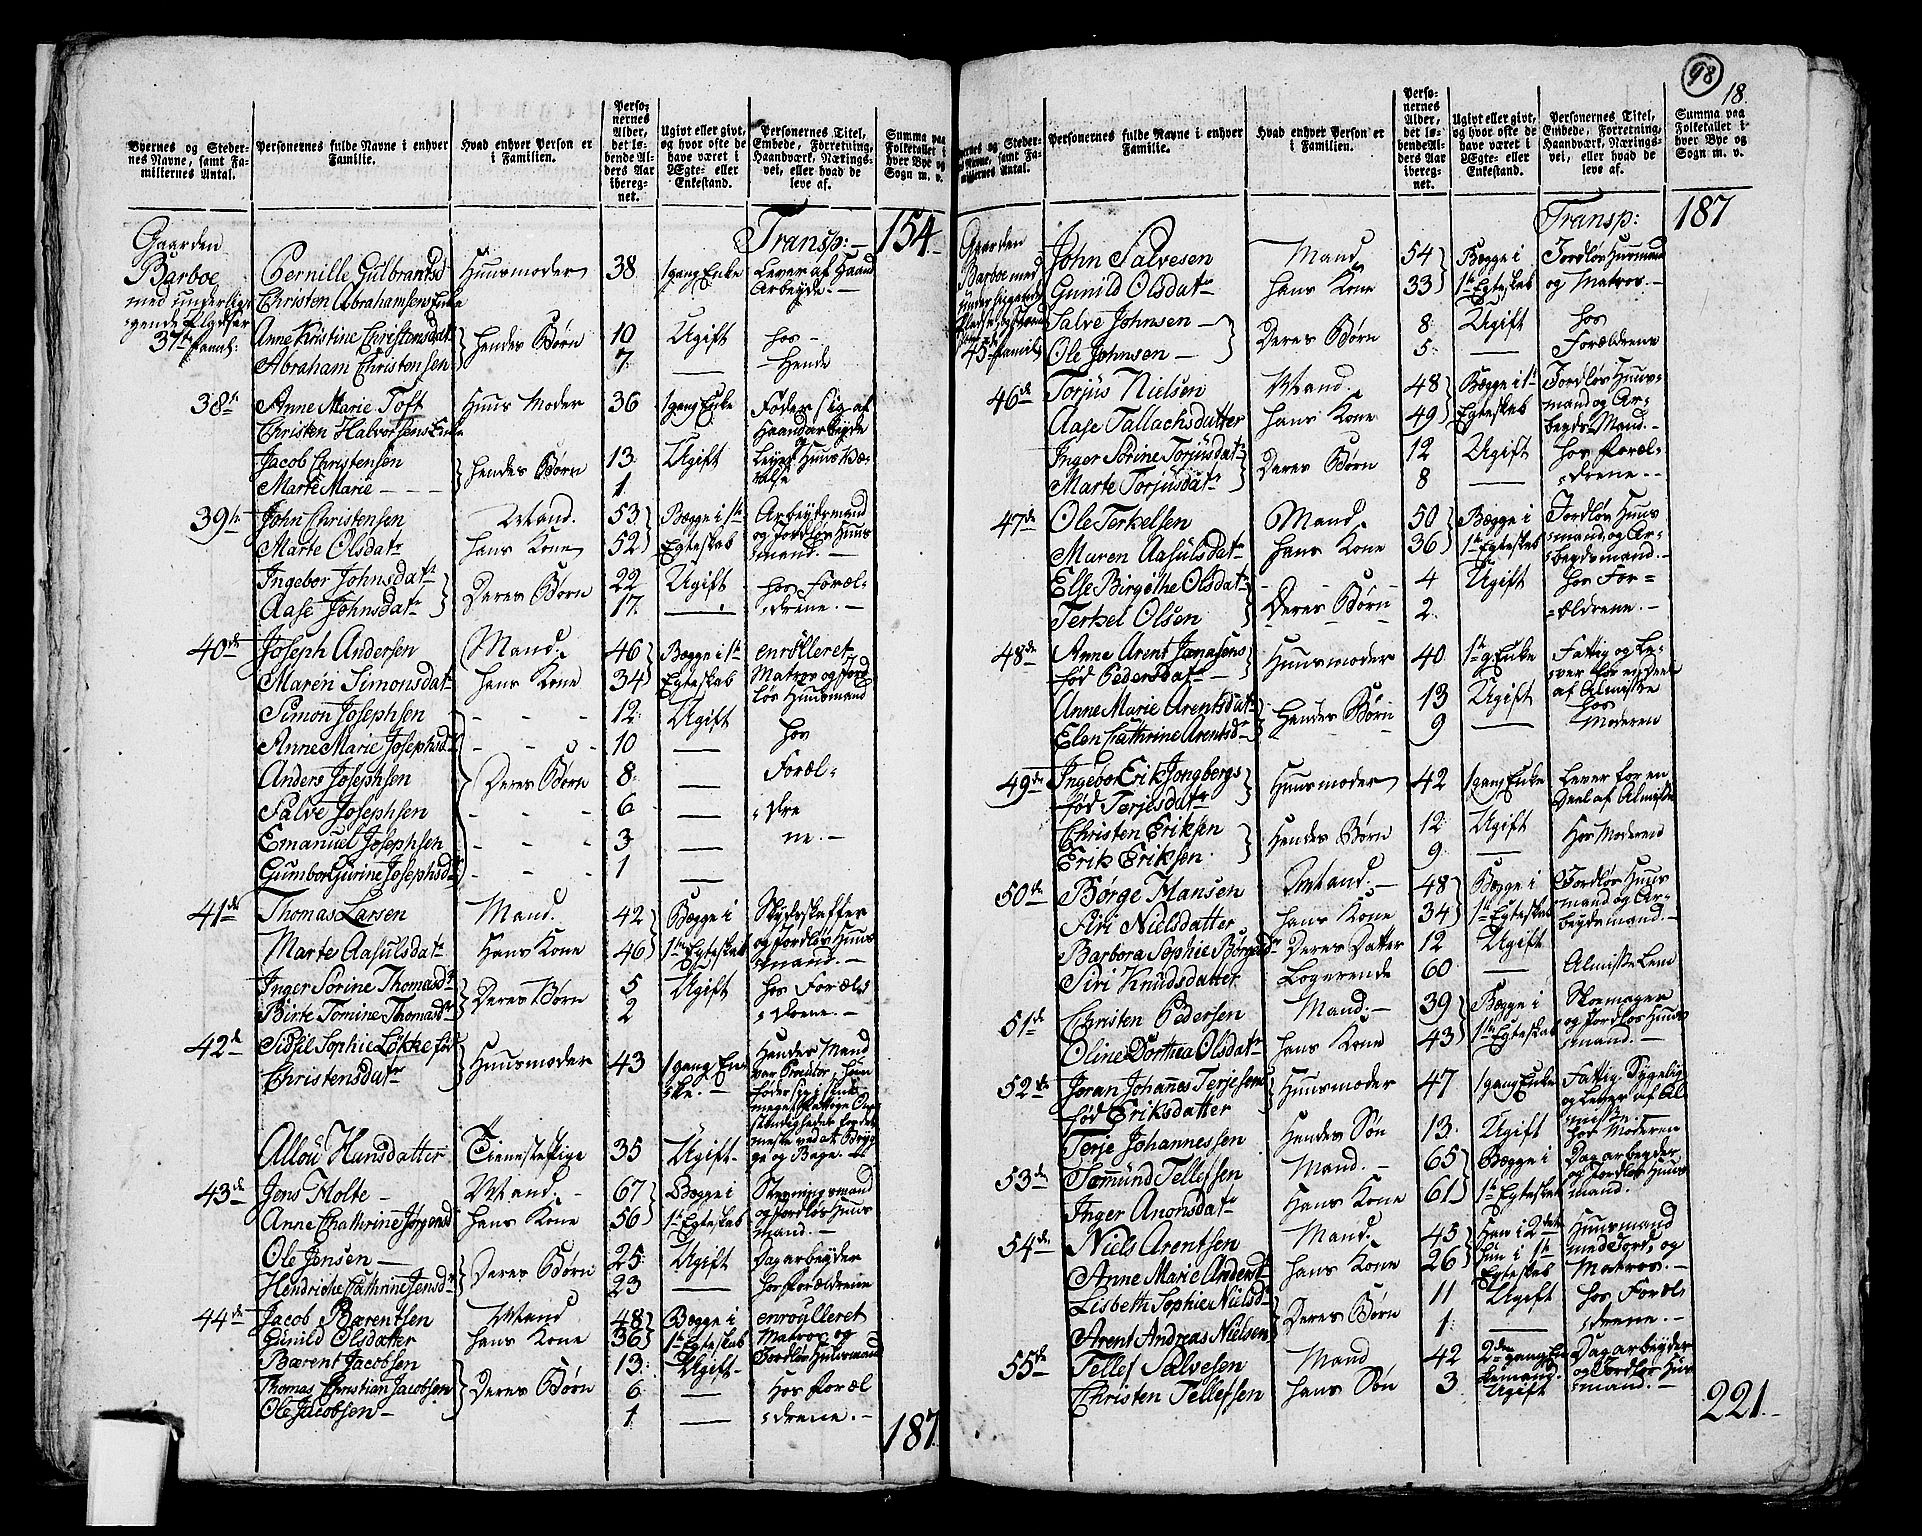 98
18.
Byernes og Stedernes Navne, samt Familiernes Antal.
Personernes fulde Navne i enhver Familie.
Hvad enhver Person er i Familien.
Personernes Alder, det løbende Alders Aar iberegnet.
Ugivt eller givt, og hvor ofte de have været i Ægte- eller Enkestand.
Personernes Titel, Embede, Forretning, Haandværk, Næringsvei, eller hvad de leve af.
Summa paa Folketallet i hver Bye og Sogn m. v.
Transp: — 154
Gaarden Barboe med underliggende Pladser
37te famil: Pernille Gulbrantsd Huusmoder 38 1 gang Enke Lever af Haand
Christen Abrahamsens Enke Arbeyde. —
Anne Kristine Christensdatr } Hendes Børn 10 Ugift hos —
Abraham Christensen 7 — Hende
38te Anne Marie Toft Huus Moder 36 1 gang Enke Føder sig af
Christen Halvorsens Enke Haandarbeyde
Jacob Christensen } Hendes Børn 13 Ugift
Marte Marie - - - 1
39te John Christensen Mand. 53 } Begge i 1te Arbeydsmand
Marte Olsdatr Hans Kone 52 Egteskab og Jordløs Huusmand. —
Ingebor Johnsdatr } Deres Børn 22 Ugift hos Foræl-
Aase Johnsdatr 17. — -drene. —
40de Joseph Andersen Mand. 46 } Begge i 1te enrolleret
Maren Simonsdatr Hans Kone 34 Egteskab Matros og Jordløs Huusmand
Simon Josephsen - - - 12 Ugift
Anne Marie Josephsdr - - - 10 — hos
Anders Josephsen Deres Børn 8 — Foræl-
Salve Josephsen - - - 6 — -dre
Emanuel Josephsen - - - 3 — ne. —
Gumbor Gurine Josephsdr - - - 1 —
41de Thomas Larsen Mand. 42 } Begge i Skydeskaffer
Marte Aasulsdatr Hans Kone 46 1te Egteskab og Jordløs Huusmand. —
Inger Sorine Thomasdr } Deres Børn 5 Ugift hos Foræl-
Birte Tomine Thomasdr 2 -drene. —
42de Sidsil Sophie Løkke fød } Huusmoder 43 1 gang En- Hendes Mand
Christensdatr ke. — var Procurator, hun
Allou Hansdatter Tienestepige 35 Ugift
43de Jens Holte — Mand. — 67 } Begge i Stevningsmand
Anne Chathrine Jørgensd Hans Kone 56 1te Egteskab og Jordløs Huusmand. —
Ole Jensen — } Deres Børn 25 Ugift Dagarbeyder
Hendriche Cathrine Jensdr 23 — hos Forældrene
44de Jacob Bærentsen Mand 48 } Begge i enroulleret
Gunild Olsdatter Hans Kone 36 1te Egteskab Matros og
Bærent Jacobsen } Deres Børn 13. Ugift Jordløs Huusmand
Thomas Christian Jacobsen 6 — Hos Foræl
Ole Jacobsen — 1 — -drene. —
187
Byernes og Stedernes Navne, samt Familiernes Antal.
Personernes fulde Navne i enhver Familie.
Hvad enhver Person er i Familien.
Personernes Alder, det løbende Alders Aar iberegnet.
Ugivt eller givt, og hvor ofte de have været i Ægte- eller Enkestand.
Personernes Titel, Embede, Forretning, Haandværk, Næringsvei, eller hvad de leve af.
Summa paa Folketallet i hver Bye og Sogn m. v.
Transp: 187
Gaarden Barboe med
45 famil John Salvesen Mand 54 } Begge i Jordløs Huusmand
Gunild Olsdatr Hans Kone 33 1te Egteskab og Matros. —
Salve Johnsen — } Deres Børn 8 Ugift hos
Ole Johnsen — 5 — Forældrene
46de Torjus Nielsen Mand. 48 } Begge i 1te Jordløs Huus-
Aase Tallachsdatter Hans Kone 49 Egteskab mand og Arbeyds Mand. —
Inger Sorine Torjusdatr } Deres Børn 12 Ugift hos Foræl-
Marte Torjusdatr 8 — -drene. —
47de Ole Terkelsen Mand. 50 } Begge i Jordløs Huus
Maren Aasulsdatr Hans Kone 36 1te Egteskab -mand og Arbeydsmand. —
Else Birgithe Olsdatr } Deres Børn 4 Ugift hos For-
Terkel Olsen 2. -ældrene. —
48de Anne Arent Jonasens Huusmoder 40 1te g Enke Fattig og Le-
fød Pedersdatr — af Almisse
Anne Marie Arentsdatr } Hendes Børn 13 Ugift hos
Elen Cathrine Arentsdr 9 — Moderen
49de Ingebor Erik Jongbergs } Huusmoder 42 1 gang Enke Lever for en
fød Terjesdatr Deel af Almisse
Christen Eriksen } Hendes Børn 12 Ugift Hos Moderen
Erik Eriksen. 9 —
50de Børge Hansen Mand. — 48 } Begge i Jordløs Huus
Siri Nielsdatter Hans Kone 34 1te Egteskab mand og Arbeydsmand. —
Barbora Sophie Børgesdr Deres Datter 12 Ugift
Siri Knudsdatter Logerende 60 — Almisse Lem
51de Christen Pedersen Mand. — 39 } Begge i Skoemager
Oline Dorthea Olsdatr Hans Kone 43 1te Egteskab og Jordløs Huusmand. —
52de Joran Johannes Terjesens } Huusmoder 47 1 gang Enke Fattig Sygelig
fød Eriksdatter og Lever af Almisse. —
Terje Johannessen Hendes Søn 13. Ugift hos Moderen
53de Tømund Tellefsen Mand. — 65 } Begge i Dagarbeyder
Inger Anonsdatr Hans Kone 61 1te Egteskab og Jordløs Huusmand.
54de Niels Arentsen Mand. 45 } Han i 2det Huusmand
Anne Marie Andersdr Hans Kone 26 Hun i 1te Egteskab med Jord, og Matros. —
Lisbeth Sophie Nielsdr } Deres Børn 11 Ugift hos Foræl-
Arent Andreas Nielsen 1. — -drene. —
55de Tellef Salvesen Mand 42 2den gang Enkemand Dagarbeyder
Christen Tellefsen Hans Søn 3 Ugift og Jordløs Huusmand. —
221. —